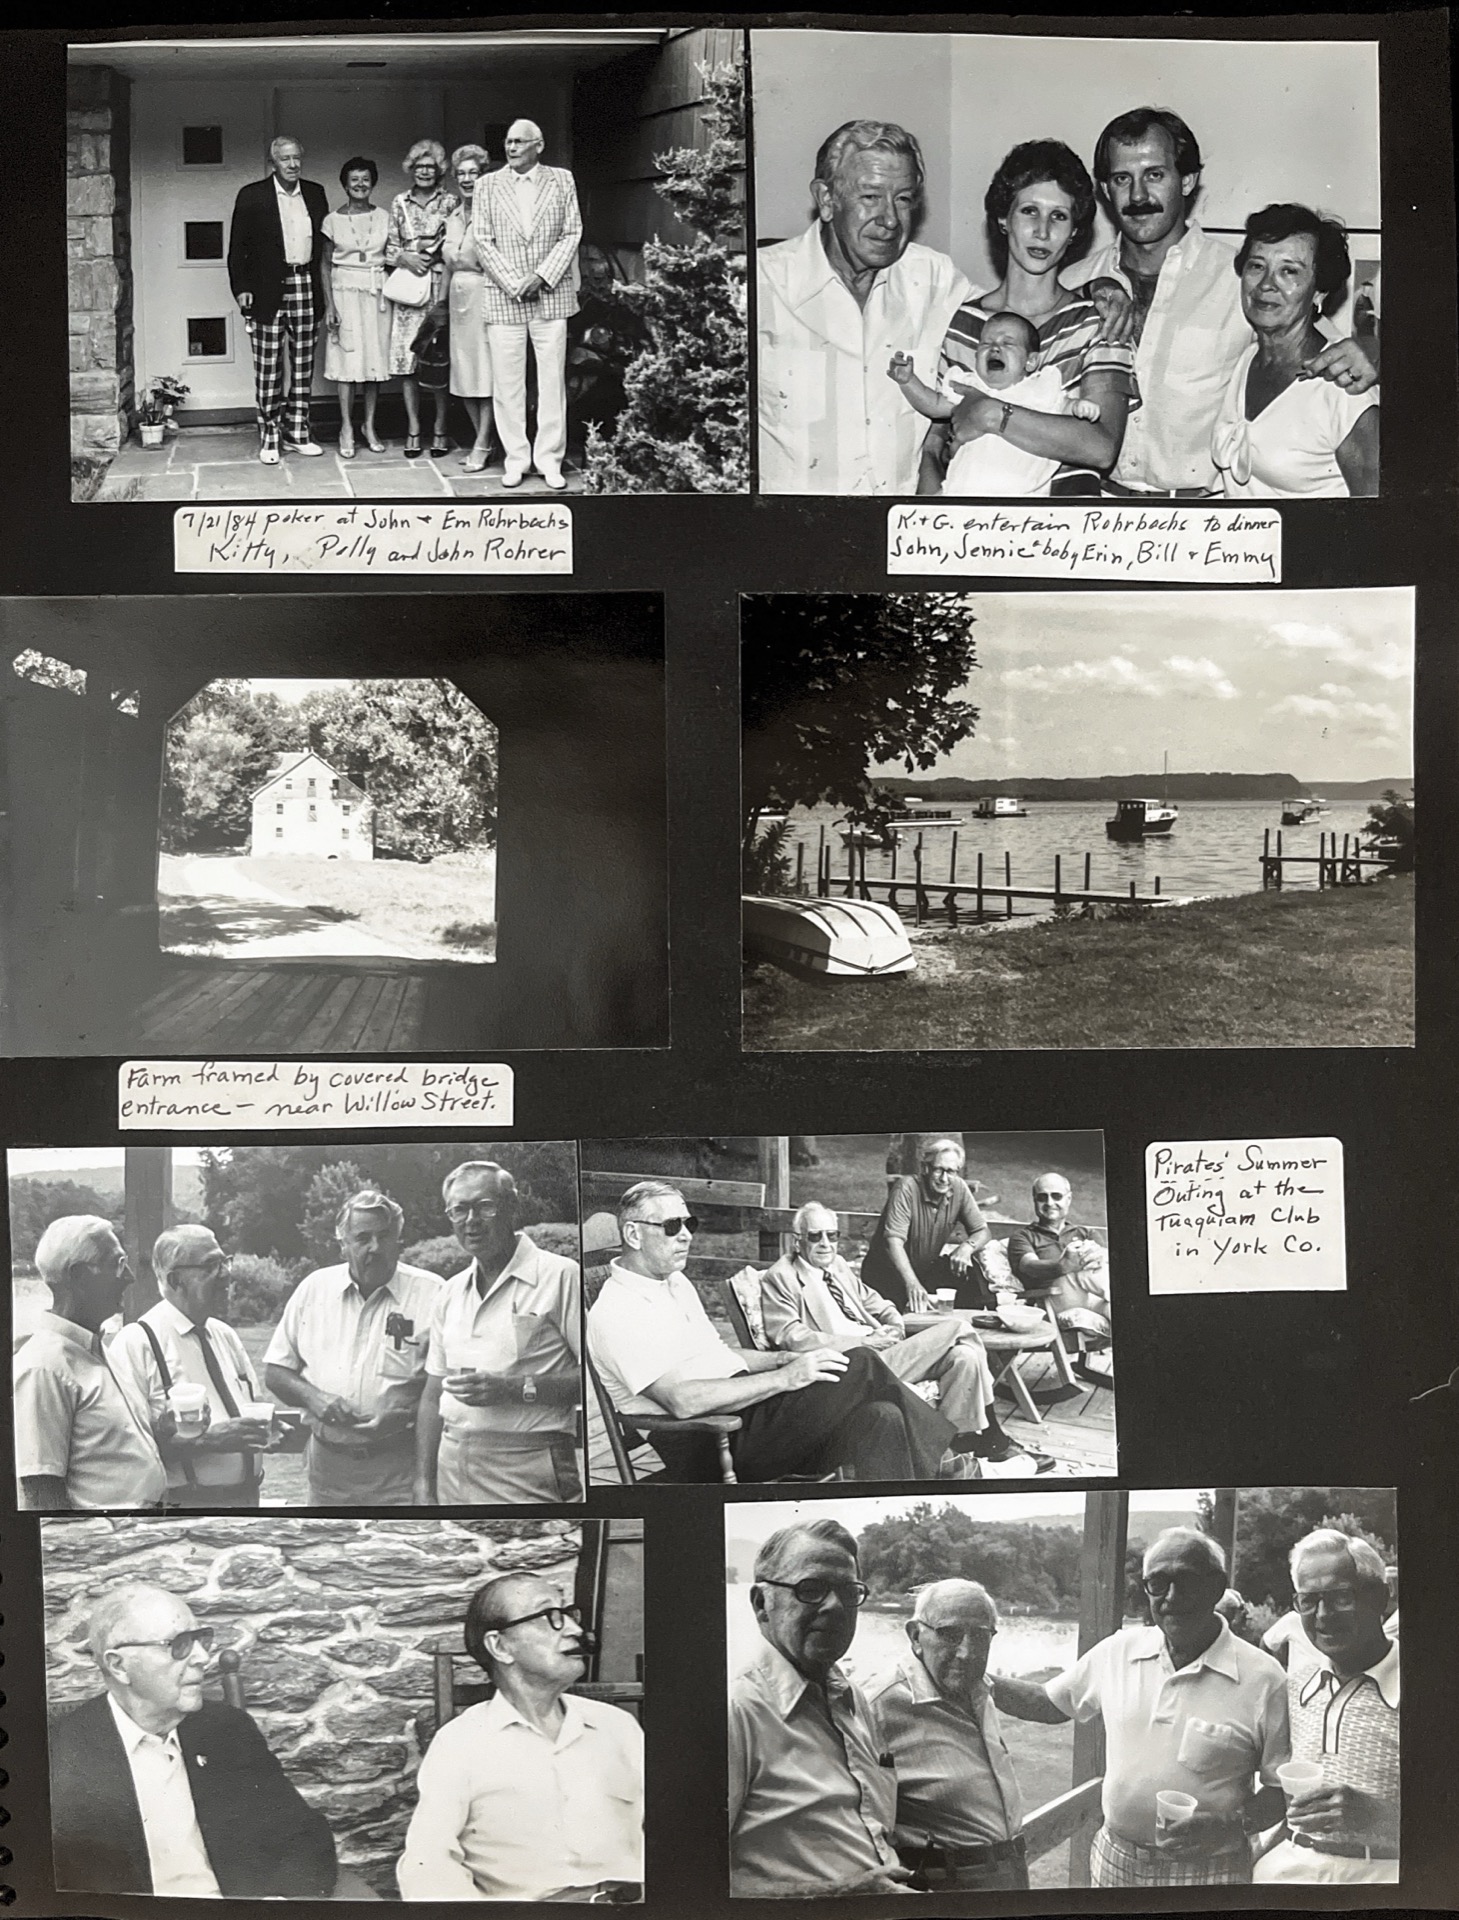 7/21/84 poker at John + Em Rohrbachs
Kitty, Polly and John Rohrer
K. + G. entertain Rohrbachs to dinner
John, Jennie & baby Erin, Bill + Emmy
Farm framed by covered bridge
entrance – near Willow Street.
Pirates' Summer
Outing at the
Tuaquiam Club
in York Co.